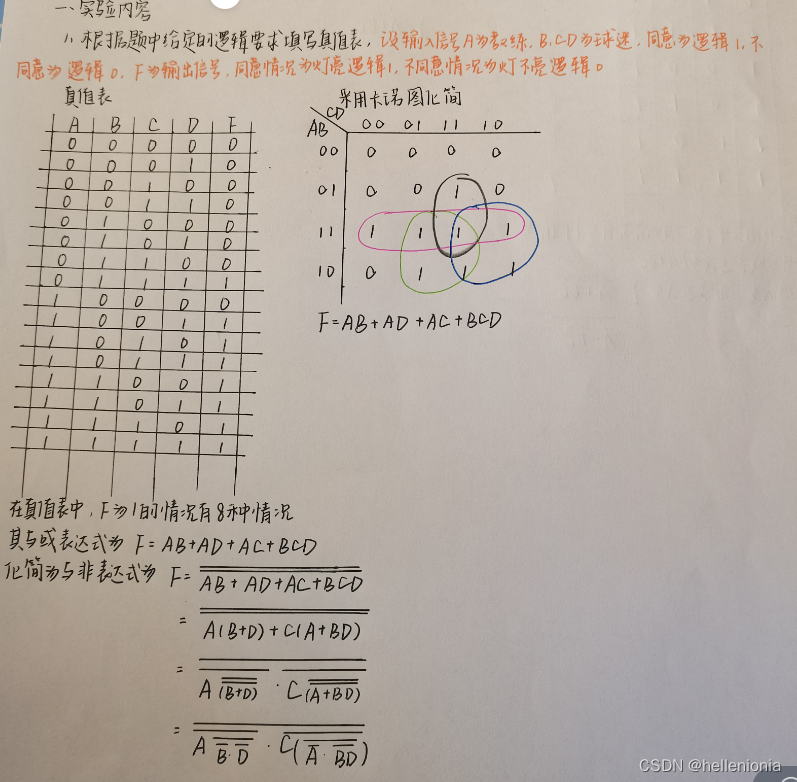 一、实验内容
1、根据题中给定的逻辑要求填写真值表，设输入信号A为教练，B.CD为球迷，同意为逻辑1，不
同意为逻辑0，F为输出信号，同意情况为灯亮逻辑1，不同意情况为灯不亮逻辑0
真值表
A B C D F
0 0 0 0 0
0 0 0 1 0
0 0 1 0 0
0 0 1 1 0
0 1 0 0 0
0 1 0 1 0
0 1 1 0 0
0 1 1 1 1
1 0 0 0 0
1 0 0 1 1
1 0 1 0 1
1 0 1 1 1
1 1 0 0 1
1 1 0 1 1
1 1 1 0 1
1 1 1 1 1
采用卡诺图化简
CD
AB 00 01 11 10
00 0 0 0 0
01 0 0 1 0
11 1 1 1 1
10 0 1 1 1
F=AB+AD+AC+BCD
在真值表中，F为1的情况有8种情况
其与或表达式为 F=AB+AD+AC+BCD
化简为与非表达式为 F=AB+AD+AC+BCD
=A(B+D)+C(A+BD)
=A(B+D)·C(A+BD)
=AB·D·C(A·BD)
CSDN @hellenionia